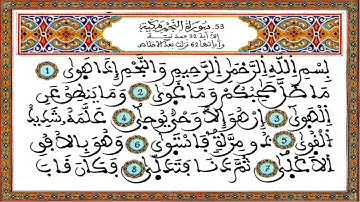 53 - سورة النجم مكية
إلا آية 32 فمدنية
وآياتها 62 نزلت بعد الإخلاص
بِسْمِ اللَّهِ الرَّحْمَٰنِ الرَّحِيمِ وَالنَّجْمِ إِذَا هَوَىٰ 1
مَا ضَلَّ صَاحِبُكُمْ وَمَا غَوَىٰ 2 وَمَا يَنطِقُ عَنِ
الْهَوَىٰ 3 إِنْ هُوَ إِلَّا وَحْيٌ يُوحَىٰ 4 عَلَّمَهُ شَدِيدُ
الْقُوَىٰ 5 ذُو مِرَّةٍ فَاسْتَوَىٰ 6 وَهُوَ بِالْأُفُقِ
الْأَعْلَىٰ 7 ثُمَّ دَنَا فَتَدَلَّىٰ 8 فَكَانَ قَابَ